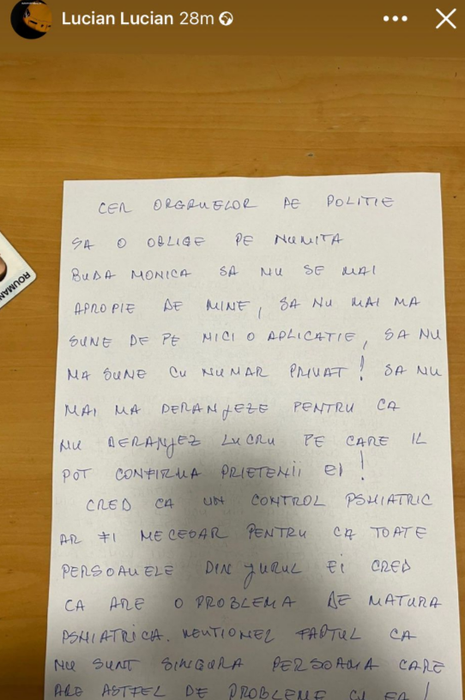 Lucian Lucian 28m
ROUMAN
CER ORGANELOR DE POLITIE
SA O OBLIGE PE NUMITA
BUDA MONICA SA NU SE MAI
APROPIE DE MINE, SA NU MAI MA
SUNE DE PE NICI O APLICATIE, SA NU
MA SUNE CU NUMAR PRIVAT! SA NU
MAI MA DERANJEZE PENTRU CA
NU DERANJEZ LUCRU PE CARE IL
POT CONFIRMA PRIETENII EI!
CRED CA UN CONTROL PSHIATRIC
AR FI NECEDAR PENTRU CA TOATE
PERSOANELE DIN JURUL EI CRED
CA ARE O PROBLEMA DE NATURA
PSHIATRICA. MENTIONEZ FAPTUL CA
NU SUNT SINGURA PERSOANA CARE
ARE ASTFEL DE PROBLEME CU EA!